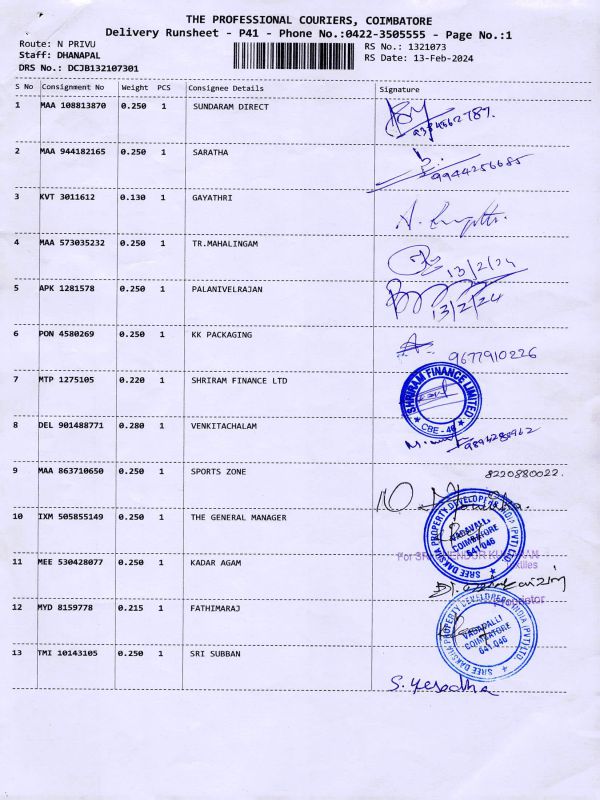 THE PROFESSIONAL COURIERS, COIMBATORE
Delivery Runsheet - P41 - Phone No.:0422-3505555 - Page No.:1
Route: N PRIVU
RS No.: 1321073
Staff: DHANAPAL
RS Date: 13-Feb-2024
DRS No.: DCJB132107301
S No Consignment No Weight PCS Consignee Details Signature
1 MAA 108813870 0.250 1 SUNDARAM DIRECT
2 MAA 944182165 0.250 1 SARATHA
9944256685
3 KVT 3011612 0.130 1 GAYATHRI
4 MAA 573035232 0.250 1 TR.MAHALINGAM
13/2/24
5 APK 1281578 0.250 1 PALANIVELRAJAN
13/2/24
6 PON 4580269 0.250 1 KK PACKAGING
9677910226
7 MTP 1275105 0.220 1 SHRIRAM FINANCE LTD
SHRIRAM FINANCE LIMITED
CBE - 46
8 DEL 901488771 0.280 1 VENKITACHALAM
9 MAA 863710650 0.250 1 SPORTS ZONE
8220880022.
10 IXM 505855149 0.250 1 THE GENERAL MANAGER
SREE DAKSHA PROPERTY DEVELOPERS INDIA (PVT) LTD.
VADAVALLI
COIMBATORE
641 046
11 MEE 530428077 0.250 1 KADAR AGAM
12 MYD 8159778 0.215 1 FATHIMARAJ
SREE DAKSHA PROPERTY DEVELOPERS INDIA (PVT) LTD.
VADAVALLI
COIMBATORE
641 046
13 TMI 10143105 0.250 1 SRI SUBBAN
S. Yesodha